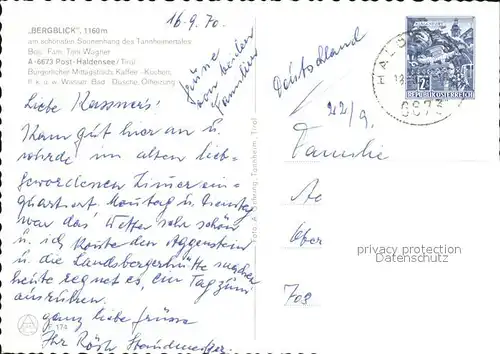 „BERGBLICK“, 1160m
am schönsten Sonnenhang des Tannheimertales
Bes. Fam. Toni Wagner
A-6673 Post-Haldensee/Tirol
Bürgerlicher Mittagstisch, Kaffee - Kuchen,
fl. k. u. w. Wasser Bad Dusche, Ölheizung
16.9.70.
Grüsse
von beiden
Familien
Liebe Kassners!
Kam gut hier an u.
wurde im alten lieb-
gewordenen Zimer ein-
quartiert. Montag u. Dienstag
war das Wetter sehr schön
u. ich konte den Aggenstein
u. die Landsbergerhütte machen
heute regnet es, ein Tag zum
ausruhen.
ganz liebe Grüsse
Ihr
174
Tannheim, Tirol
REPUBLIK ÖSTERREICH
6673
Deutschland
22/9.
Familie
Ober
privacy protection
Datenschutz
708